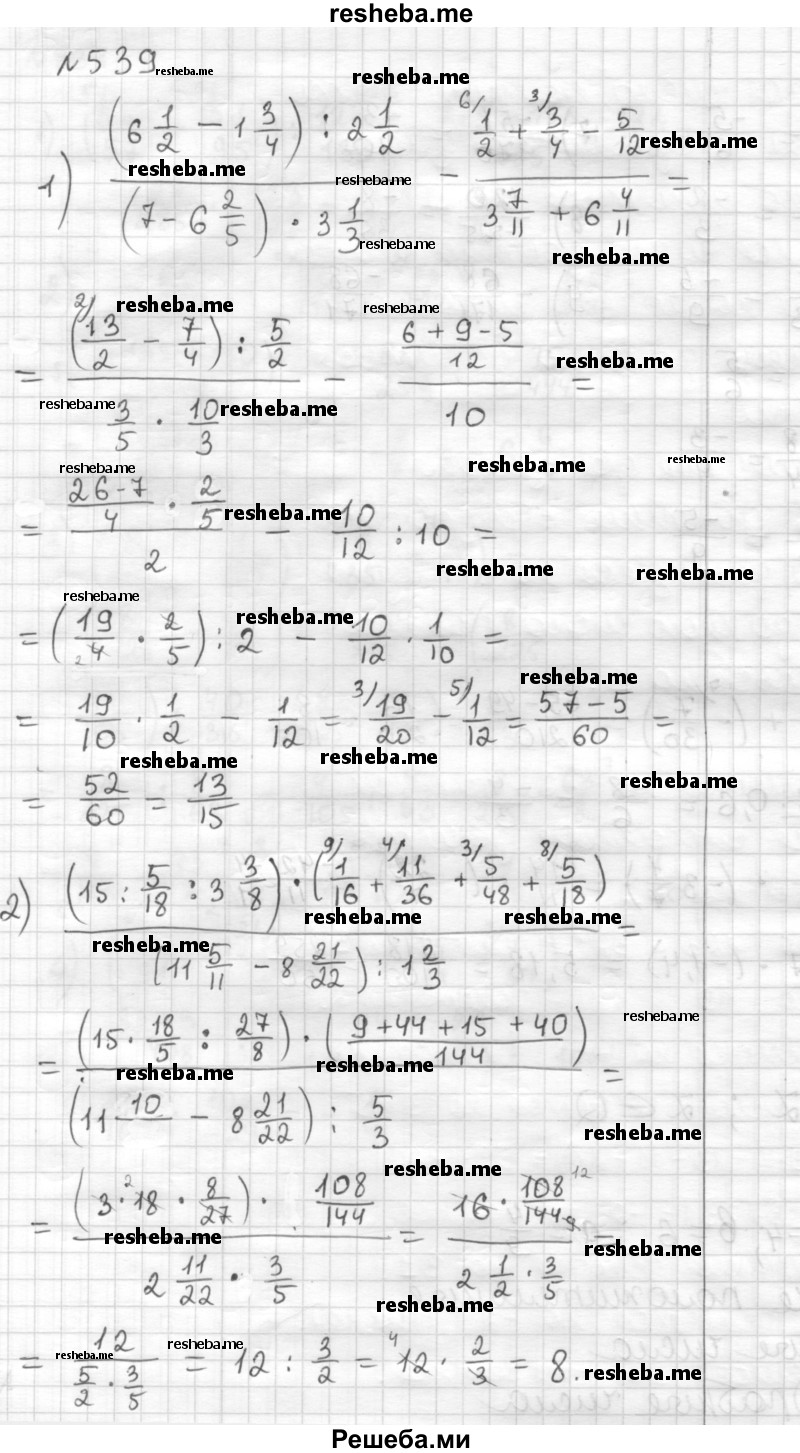 resheba.me
№539
1) ((6 1/2 − 1 3/4) : 2 1/2) / ((7 − 6 2/5) · 3 1/3) − (6/ 1/2 + 3/ 3/4 − 5/12) / (3 7/11 + 6 4/11) =
= ((2/ 13/2 − 7/4) : 5/2) / (3/5 · 10/3) − ((6 + 9 − 5)/12) / 10 =
= ((26 − 7)/4 · 2/5) / 2 − 10/12 : 10 =
= (19/4 2 · 2/5) : 2 − 10/12 · 1/10 =
= 19/10 · 1/2 − 1/12 = 3/ 19/20 − 5/ 1/12 = (57 − 5)/60 =
= 52/60 = 13/15
2) ((15 : 5/18 : 3 3/8) · (9/ 1/16 + 4/ 11/36 + 3/ 5/48 + 8/ 5/18)) / ((11 5/11 − 8 21/22) : 1 2/3) =
= ((15 · 18/5 : 27/8) · ((9 + 44 + 15 + 40)/144)) / ((11 10/ − 8 21/22) : 5/3) =
= ((3 · 2 18 · 8/27) · 108/144) / (2 11/22 · 3/5) = (16 · 108 12/144 9) / (2 1/2 · 3/5) =
= 12 / (5/2 · 3/5) = 12 : 3/2 = 4 12 · 2/3 = 8.
resheba.me
Решеба.ми